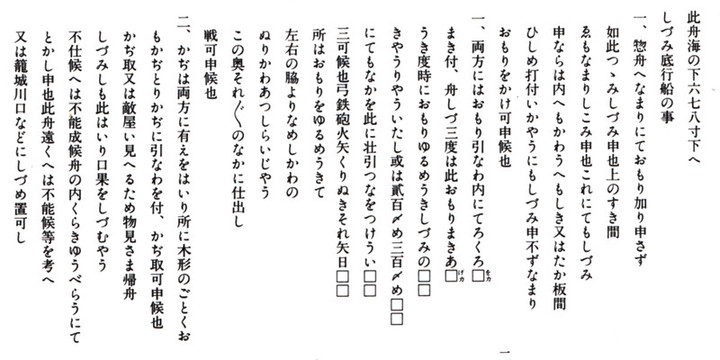 此舟海の下六七八寸下へ
しづみ底行船の事
一、惣舟へなまりにておもり加り申さず
如此つゝみしづみ申也上のすき間
ゑもなまりしこみ申也これにてもしづみ
申ならは内へもかわうへもしき又はたか板間
ひしめ打付いかやうにもしづみ申不ずなまり
おもりをかけ可申候也
一、両方にはおもり引なわ内にてろくろ□□
をカ
まき付、舟しづ三度は此おもりまきあ□
げカ
うき度時におもりゆるめうきしづみの□□
きやうりやういたし或は貳百〆め三百〆め□□
にてもなかを此に壮引つなをつけうい□□
三可候也弓鉄砲火矢くりぬきそれ矢日□□
所はおもりをゆるめうきて
左右の脇よりなめしかわの
ぬりかわあつしらいじやう
この奥それ〴〵のなかに仕出し
戦可申候也
二、かぢは両方に有えをはいり所に木形のごとくお
もかぢとりかぢに引なわを付、かぢ取可申候也
かぢ取又は敵屋い見へるため物見さま帰舟
しづみしも此はいり口果をしづむやう
不仕候へは不能成候舟の内くらきゆうべらうにて
とかし申也此舟遠くへは不能候等を考へ
又は籠城川口などにしづめ置可し